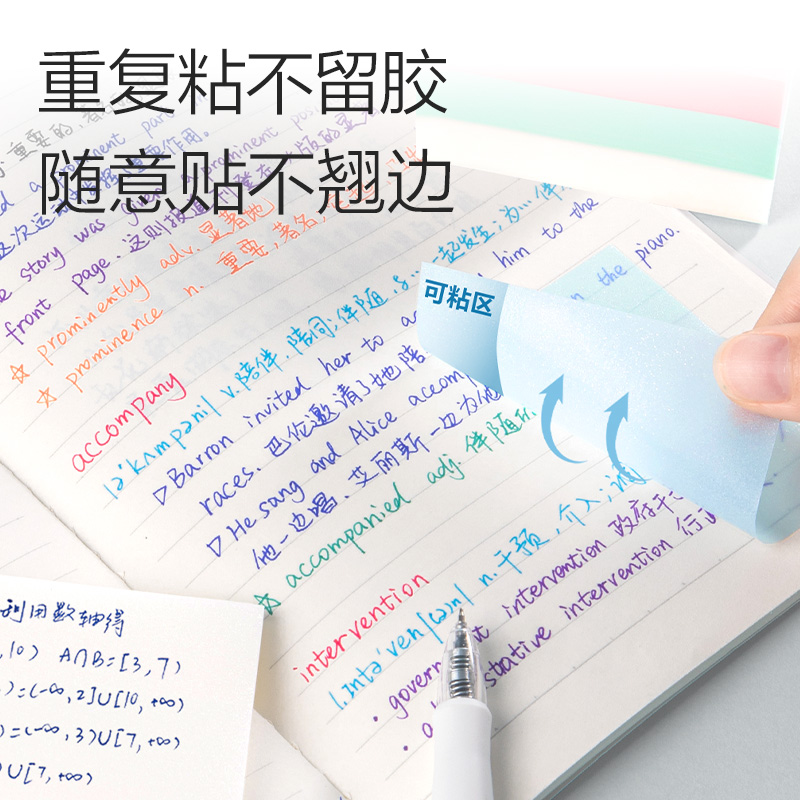 重复粘不留胶
随意贴不翘边
可粘区
重要的
front page. 这则报道
☆ prominently adv. 显著地
☆ prominence n. 重要，著名
him to the
the piano.
accompany
|ə'kʌmpəni| v. 陪伴，陪同；伴随
▷ Barron invited her to
races. 巴伦邀请了她陪
▷ He sang and Alice accom
他一边唱，艾丽斯一边为他
☆ accompanied adj. 伴随
intervention
n. 干预，介入；
intervention 政府干
strative intervention 行
利用数轴得
,10) A∩B=[3,7)
)=(-∞,2]∪[10,+∞)
)=(-∞,3)∪[7,+∞)
)∪[7,+∞)